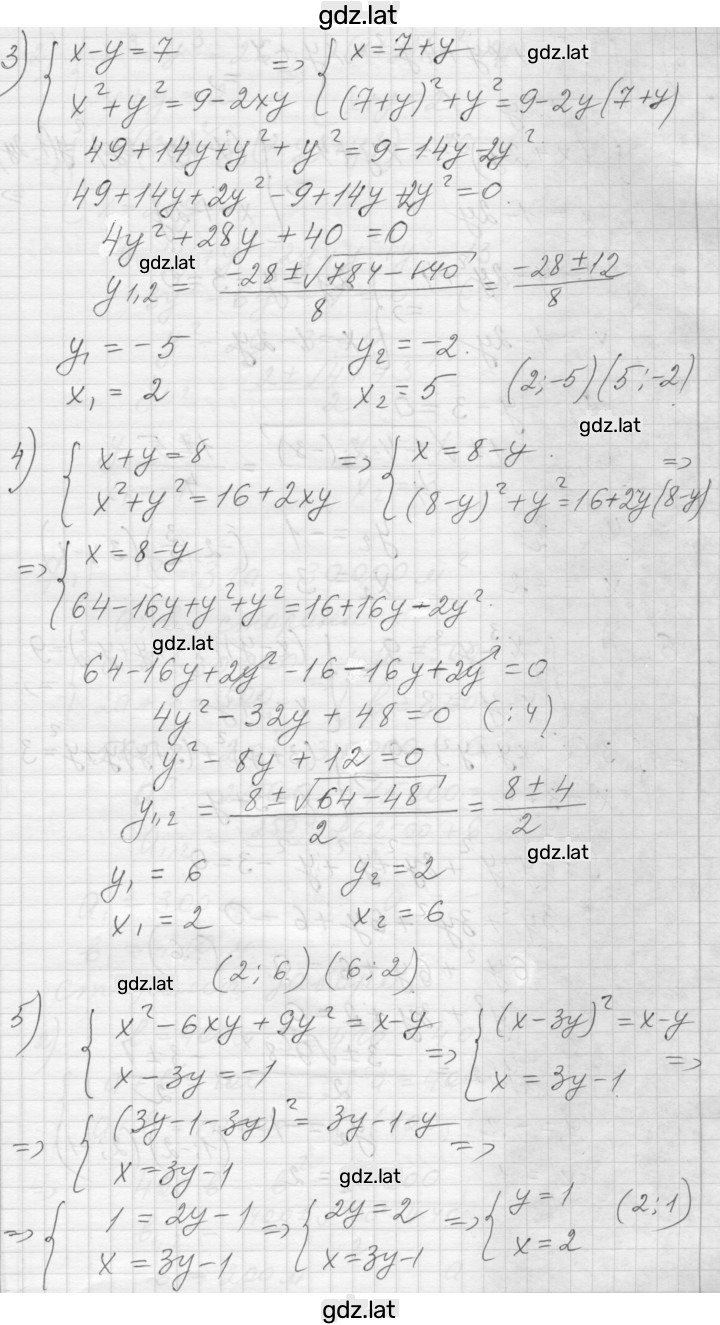 gdz.lat
3) { x-y=7 => { x=7+y gdz.lat
x²+y²=9-2xy (7+y)²+y²=9-2y(7+y)
49+14y+y²+y²=9-14y-2y²
49+14y+2y²-9+14y+2y²=0
4y²+28y+40=0
gdz.lat
y1,2 = (-28±√(784-640))/8 = (-28±12)/8
y₁=-5 y₂=-2
x₁=2 x₂=5 (2;-5) (5;-2)
gdz.lat
4) { x+y=8 => { x=8-y =>
x²+y²=16+2xy (8-y)²+y²=16+2y(8-y)
=> { x=8-y
64-16y+y²+y²=16+16y-2y²
gdz.lat
64-16y+2y²-16-16y+2y²=0
4y²-32y+48=0 (:4)
y²-8y+12=0
y1,2 = (8±√(64-48))/2 = (8±4)/2
gdz.lat
y₁=6 y₂=2
x₁=2 x₂=6
(2;6) (6;2)
gdz.lat
5) { x²-6xy+9y²=x-y => { (x-3y)²=x-y =>
x-3y=-1 x=3y-1
=> { (3y-1-3y)²=3y-1-y =>
x=3y-1
gdz.lat
=> { 1=2y-1 => { 2y=2 => { y=1 (2;1)
x=3y-1 x=3y-1 x=2
gdz.lat